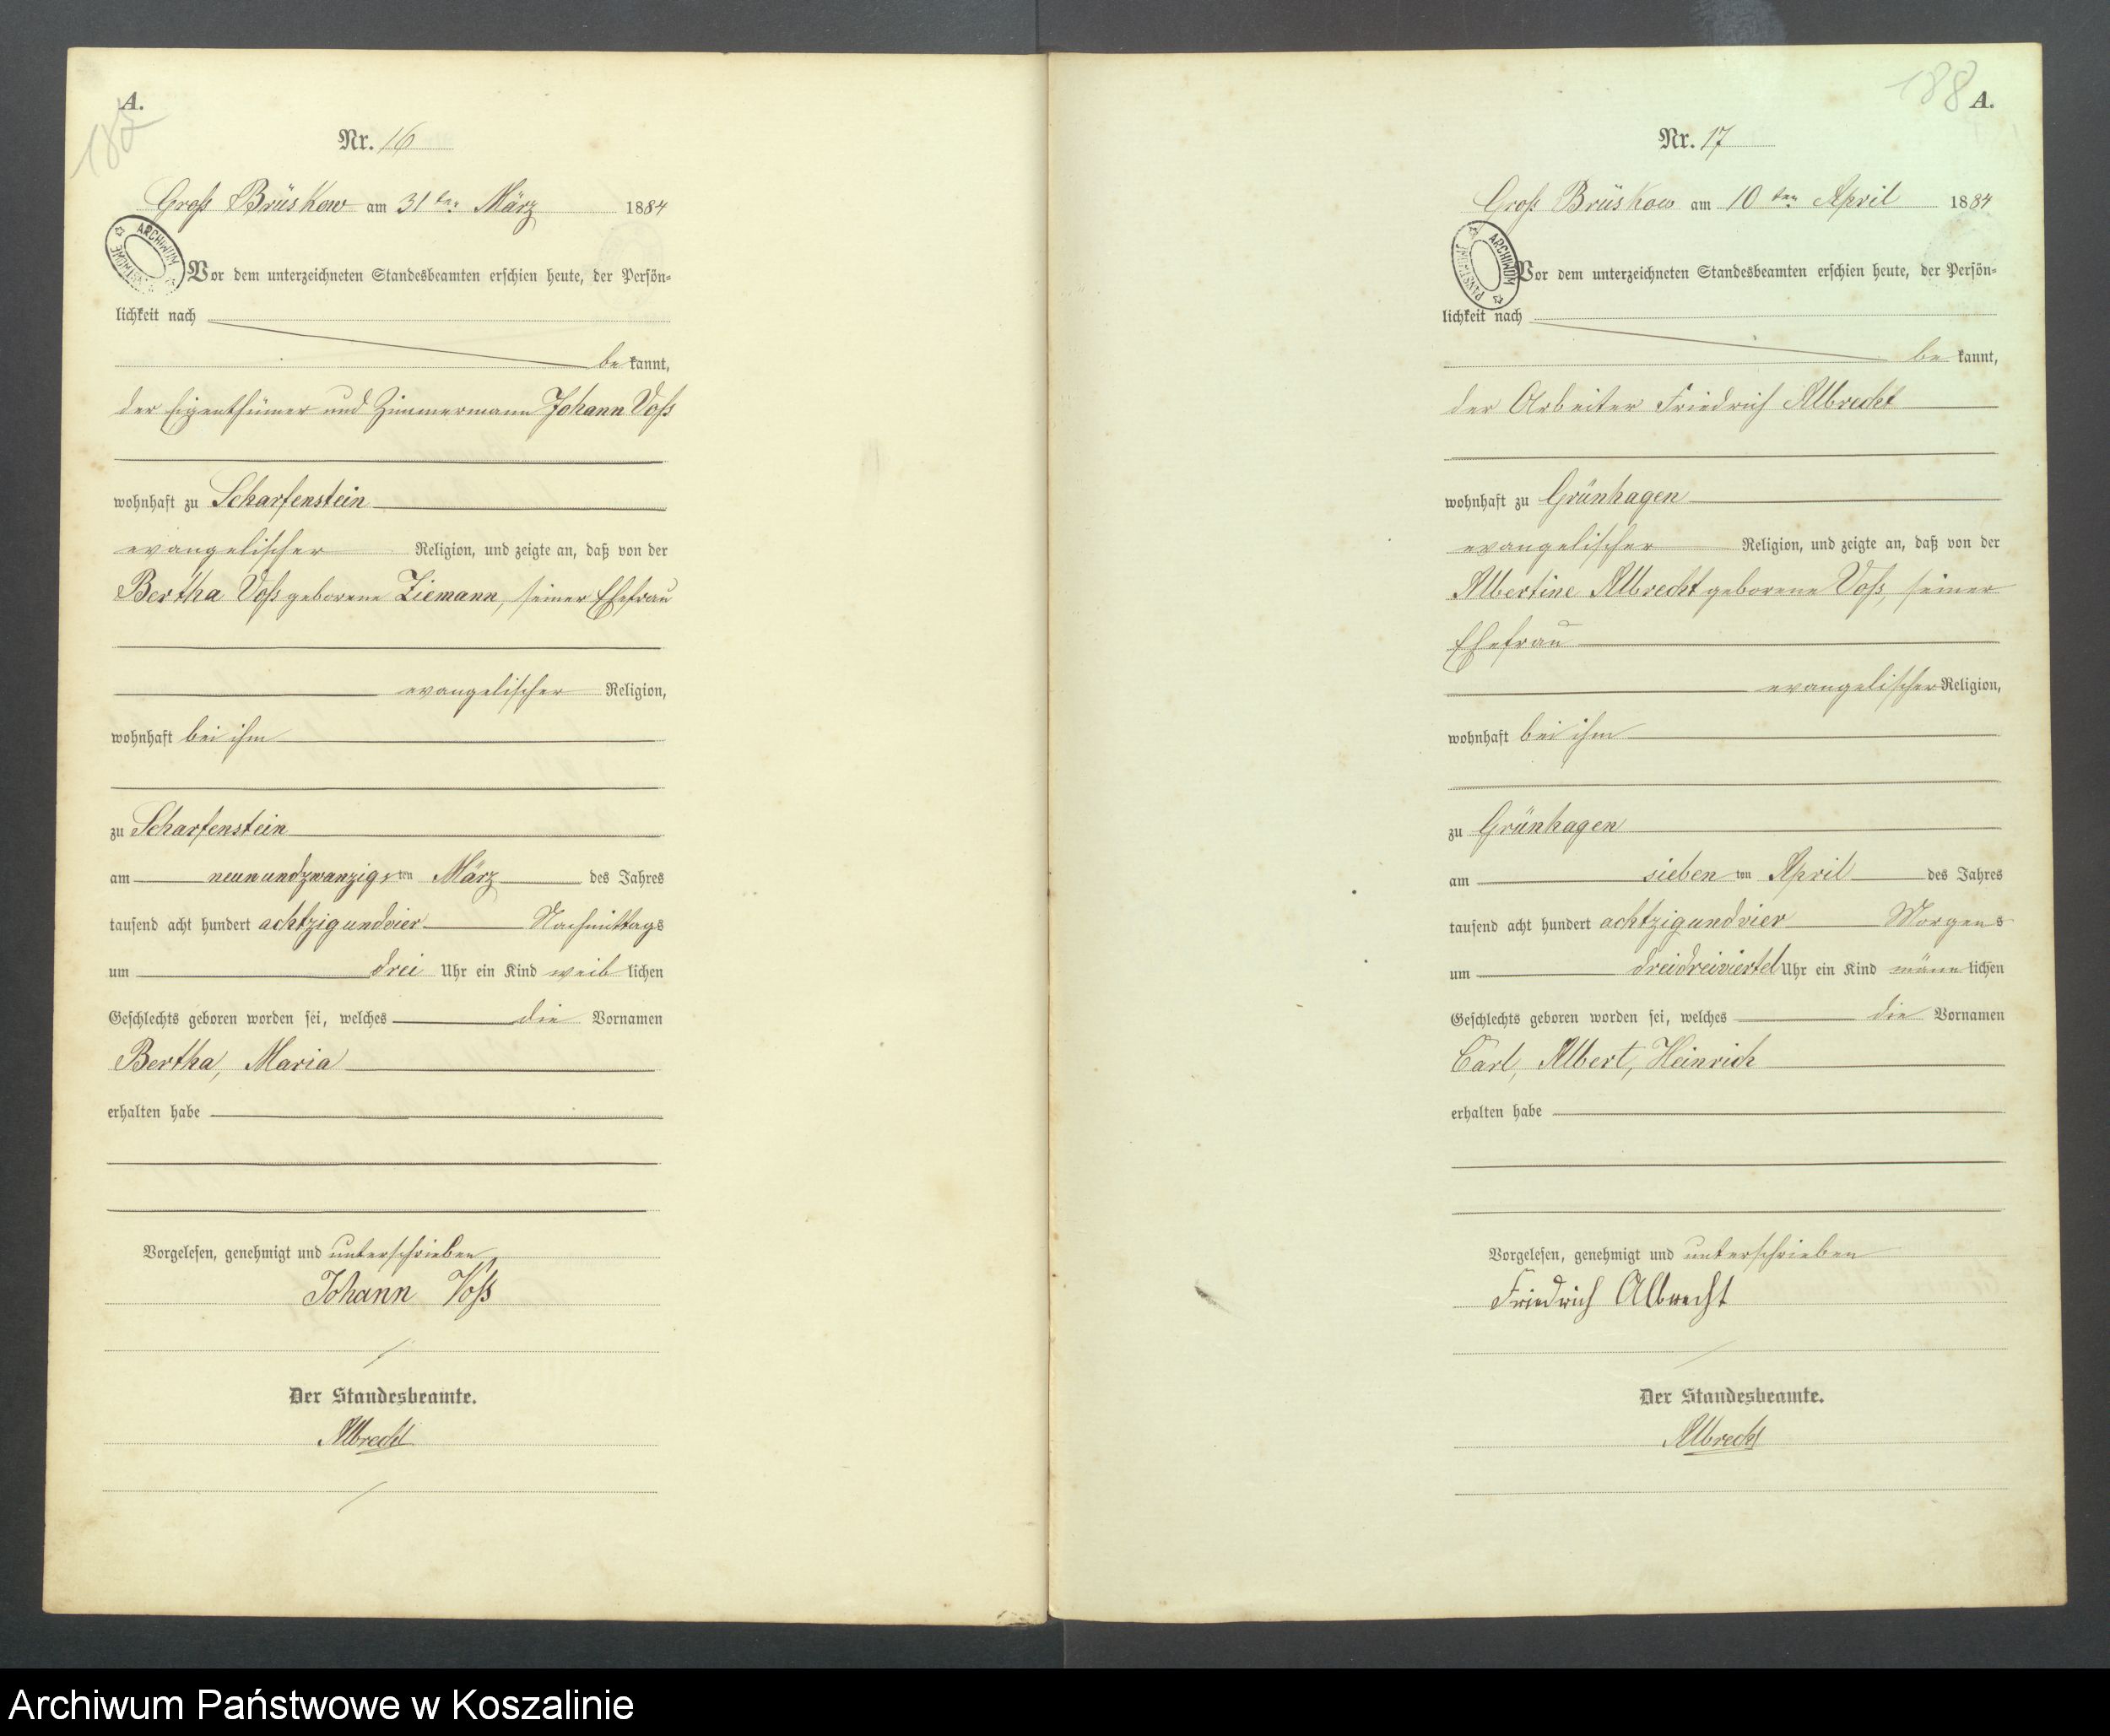 A.
187
Nr. 16
Groß Brüskow am 31ten März 1884
ARCHIWUM PAŃSTWOWE
Vor dem unterzeichneten Standesbeamten erschien heute, der Persön=
lichkeit nach
be kannt,
der Eigenthümer und Zimmermann Johann Voß
wohnhaft zu Scharfenstein
evangelischer Religion, und zeigte an, daß von der
Bertha Voß geborene Ziemann, seiner Ehefrau
evangelischer Religion,
wohnhaft bei ihm
zu Scharfenstein
am neunundzwanzigsten März des Jahres
tausend acht hundert achtzigundvier Nachmittags
um drei Uhr ein Kind weib lichen
Geschlechts geboren worden sei, welches die Vornamen
Bertha, Maria
erhalten habe
Vorgelesen, genehmigt und unterschrieben
Johann Voß
Der Standesbeamte.
Albrecht
188 A.
Nr. 17
Groß Brüskow am 10ten April 1884
ARCHIWUM PAŃSTWOWE
Vor dem unterzeichneten Standesbeamten erschien heute, der Persön=
lichkeit nach
be kannt,
der Arbeiter Friedrich Albrecht
wohnhaft zu Grünhagen
evangelischer Religion, und zeigte an, daß von der
Albertine Albrecht geborene Voß, seiner
Ehefrau
evangelischer Religion,
wohnhaft bei ihm
zu Grünhagen
am sieben ten April des Jahres
tausend acht hundert achtzigundvier Morgens
um dreidreiviertel Uhr ein Kind männ lichen
Geschlechts geboren worden sei, welches die Vornamen
Carl, Albert, Heinrich
erhalten habe
Vorgelesen, genehmigt und unterschrieben
Friedrich Albrecht
Der Standesbeamte.
Albrecht
Archiwum Państwowe w Koszalinie